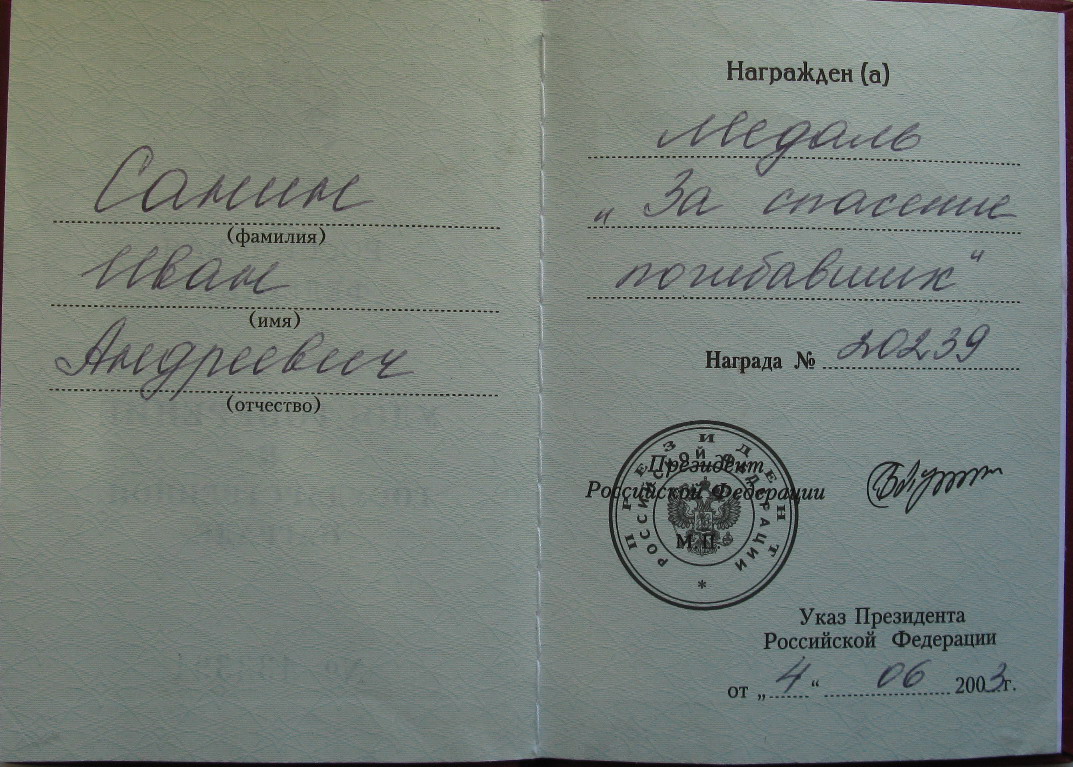 Санин
(фамилия)
Иван
(имя)
Андреевич
(отчество)
Награжден (а)
Медаль
„За спасение
погибавших“
Награда № 20239
Президент
Российской Федерации
М.П.
ПРЕЗИДЕНТ
РОССИЙСКОЙ ФЕДЕРАЦИИ
*
Указ Президента
Российской Федерации
от „4“ 06 2003г.